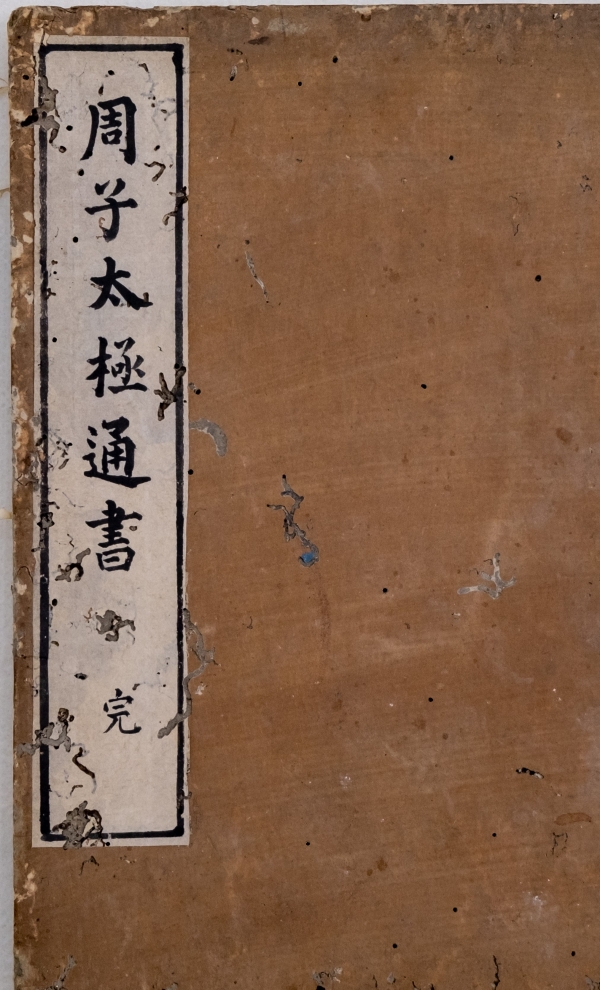 周子太極通書 完